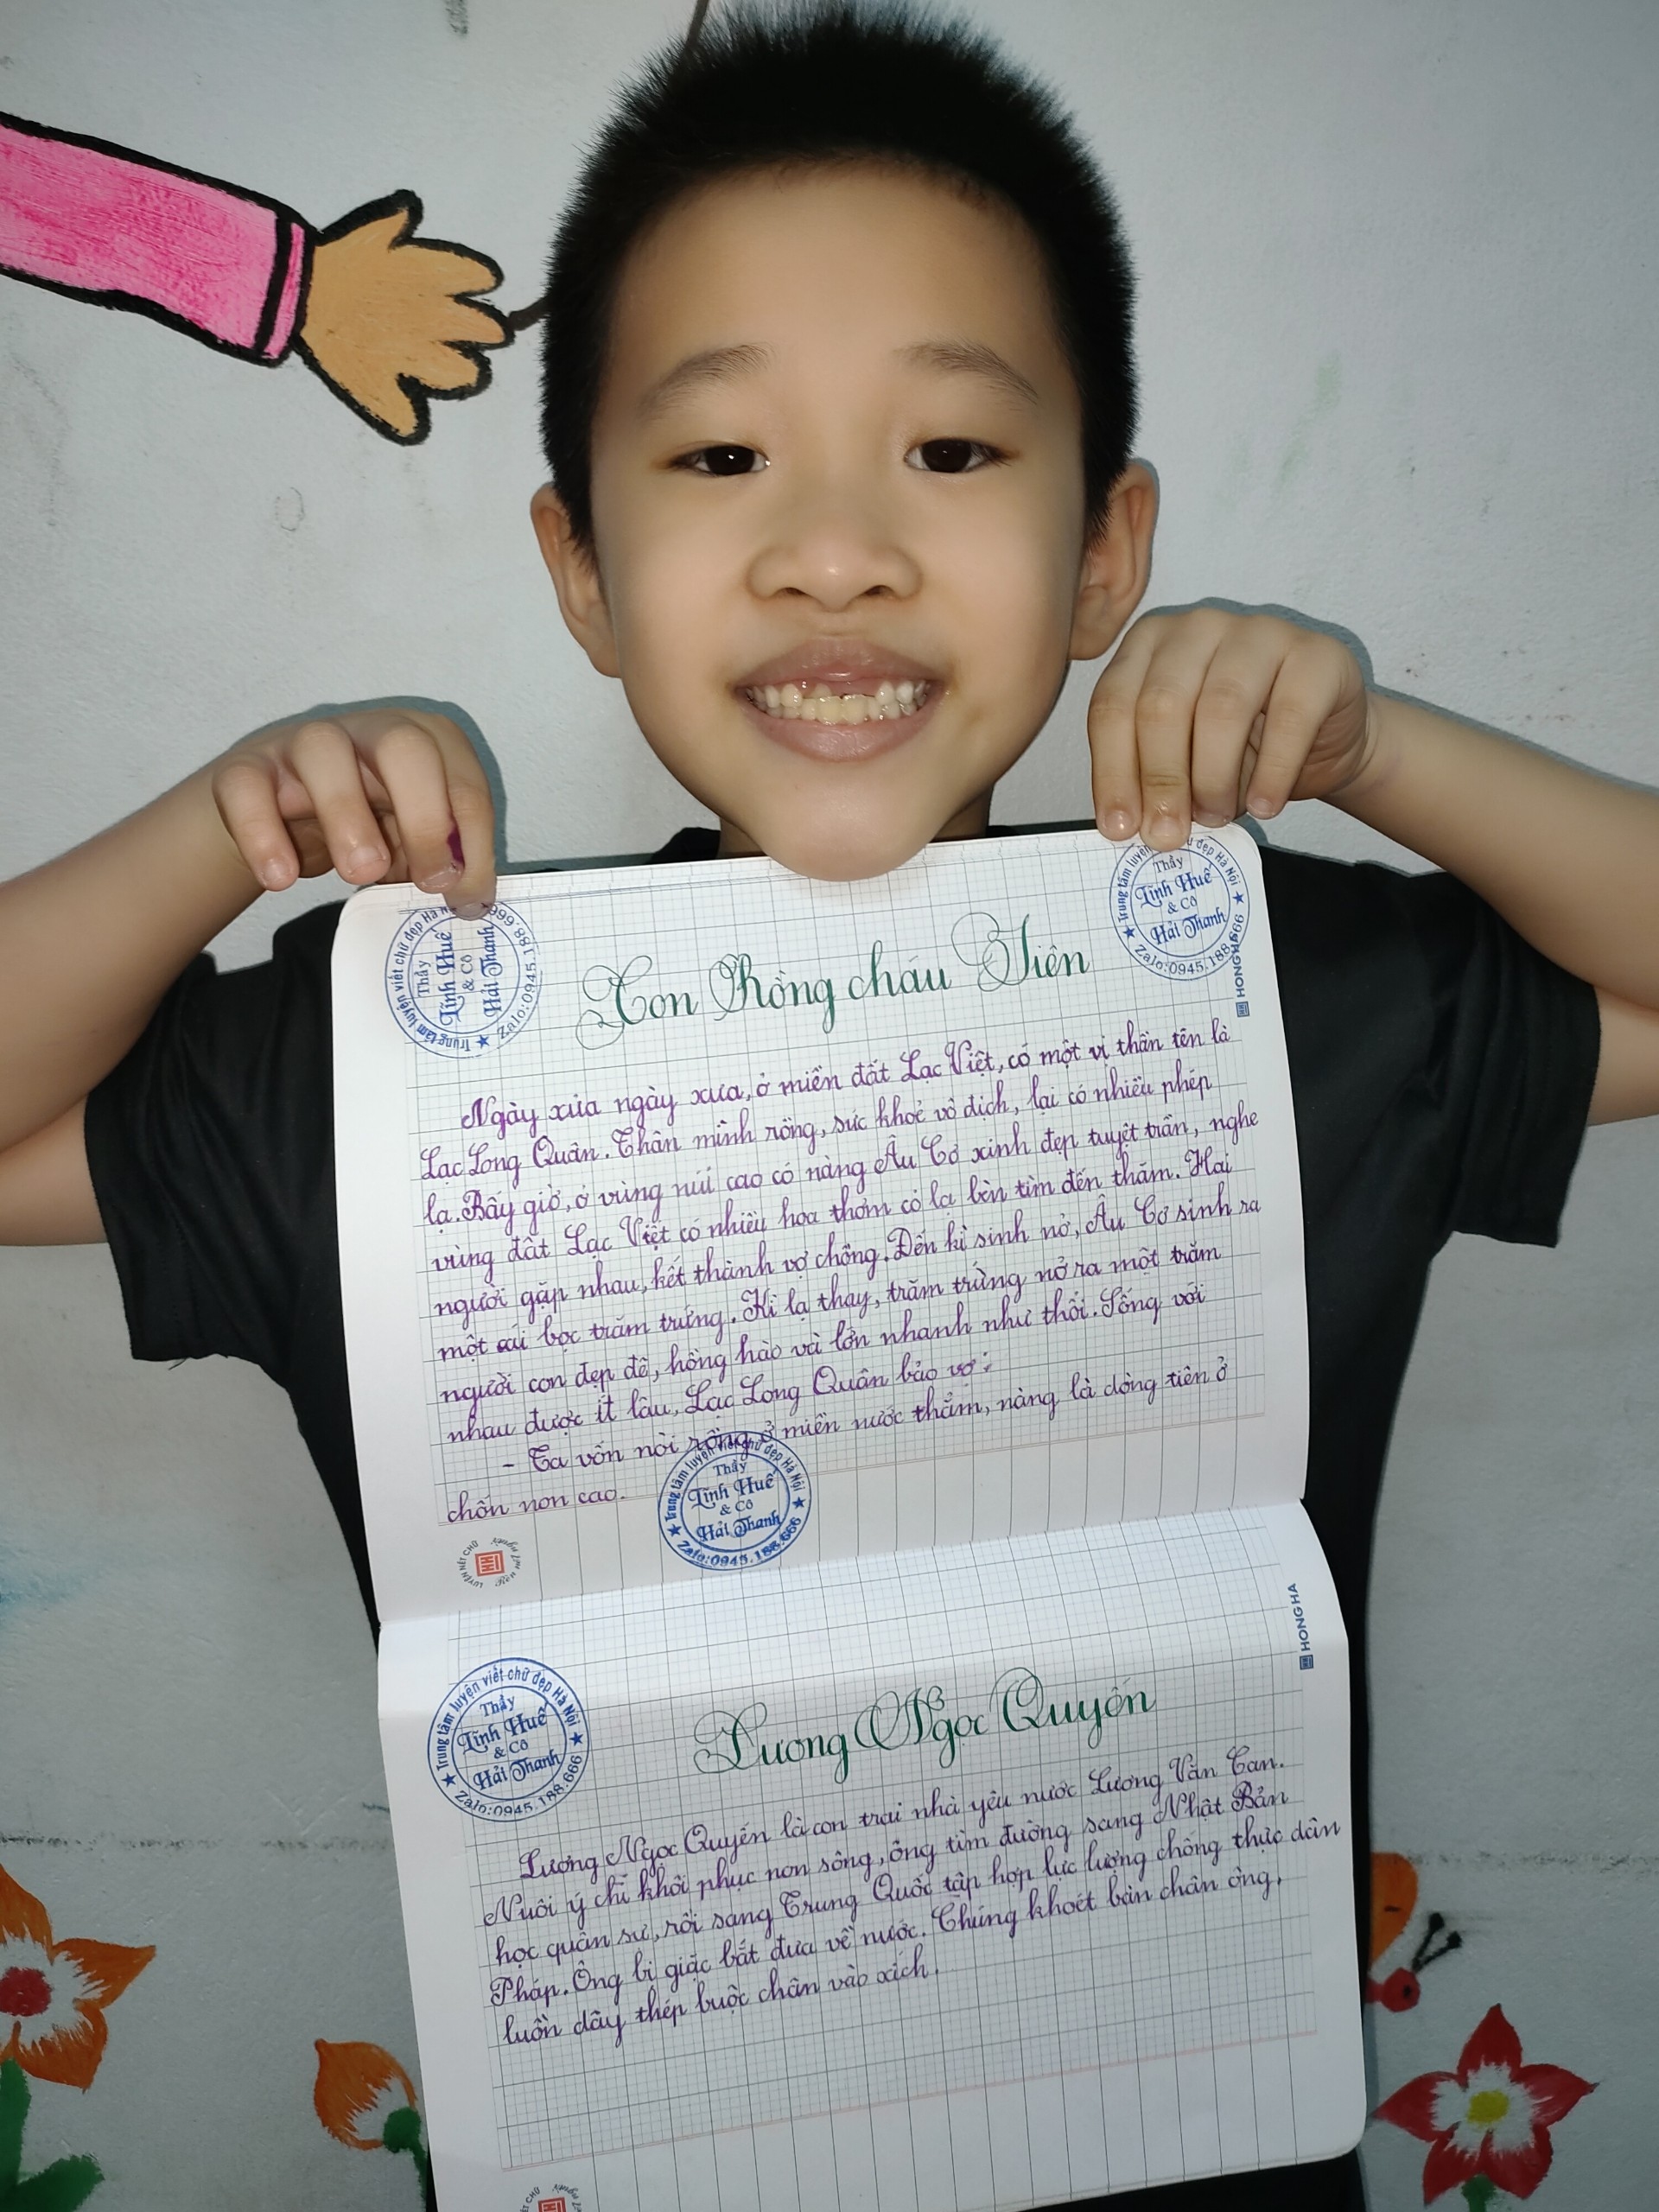 Trung tâm luyện viết chữ đẹp Hà N
Thầy
Tĩnh Huế
& Cô
Hải Thanh
Zalo:0945.188.666
Trung tâm luyện viết chữ đẹp Hà Nội
Thầy
Tĩnh Huế
& Cô
Hải Thanh
Zalo:0945.188.666
HONG HA
Con Rồng cháu Tiên
Ngày xửa ngày xưa, ở miền đất Lạc Việt, có một vị thần tên là
Lạc Long Quân. Thần mình rồng, sức khoẻ vô địch, lại có nhiều phép
lạ. Bấy giờ, ở vùng núi cao có nàng Âu Cơ xinh đẹp tuyệt trần, nghe
vùng đất Lạc Việt có nhiều hoa thơm cỏ lạ bèn tìm đến thăm. Hai
người gặp nhau, kết thành vợ chồng. Đến kì sinh nở, Âu Cơ sinh ra
một cái bọc trăm trứng. Kì lạ thay, trăm trứng nở ra một trăm
người con đẹp đẽ, hồng hào và lớn nhanh như thổi. Sống với
nhau được ít lâu, Lạc Long Quân bảo vợ:
- Ta vốn nòi rồng ở miền nước thẳm, nàng là dòng tiên ở
chốn non cao.
Trung tâm luyện viết chữ đẹp Hà Nội
Thầy
Tĩnh Huế
& Cô
Hải Thanh
Zalo:0945.188.666
LUYỆN NÉT CHỮ
Rèn nết người
HONG HA
Trung tâm luyện viết chữ đẹp Hà Nội
Thầy
Tĩnh Huế
& Cô
Hải Thanh
Zalo:0945.188.666
Lương Ngọc Quyến
Lương Ngọc Quyến là con trai nhà yêu nước Lương Văn Can.
Nuôi ý chí khôi phục non sông, ông tìm đường sang Nhật Bản
học quân sự, rồi sang Trung Quốc tập hợp lực lượng chống thực dân
Pháp. Ông bị giặc bắt đưa về nước. Chúng khoét bàn chân ông,
luồn dây thép buộc chân vào xích.